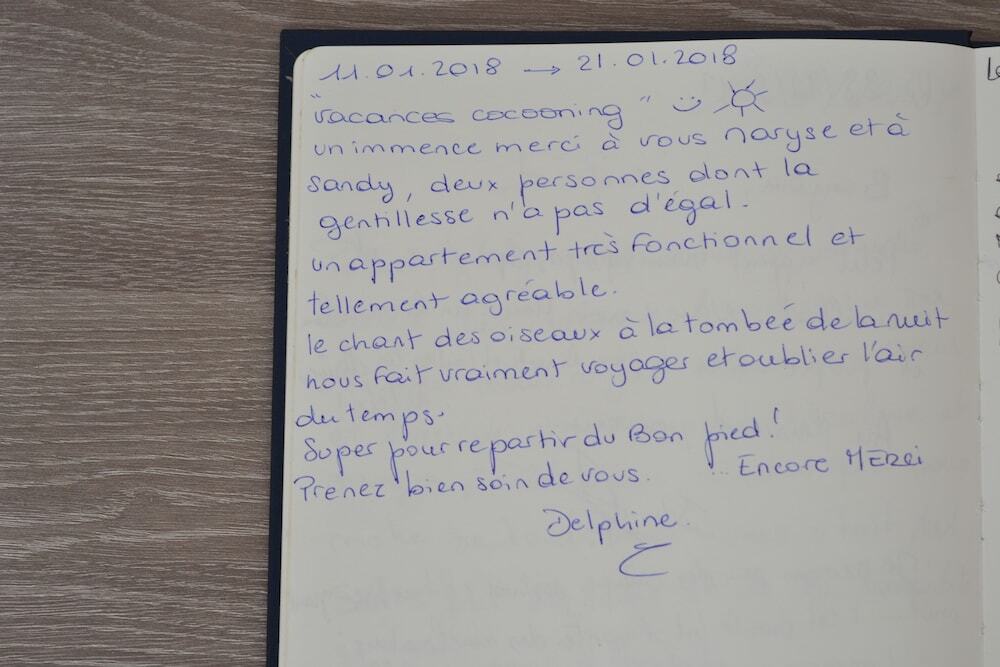 11.01.2018 → 21.01.2018
"Vacances cocooning"
un immence merci à vous Maryse et à
Sandy, deux personnes dont la
gentillesse n'a pas d'égal.
un appartement très fonctionnel et
tellement agréable.
le chant des oiseaux à la tombeé de la nuit
nous fait vraiment voyager et oublier l'air
du temps.
Super pour repartir du Bon pied!
Prenez bien soin de vous. Encore Merci
Delphine.